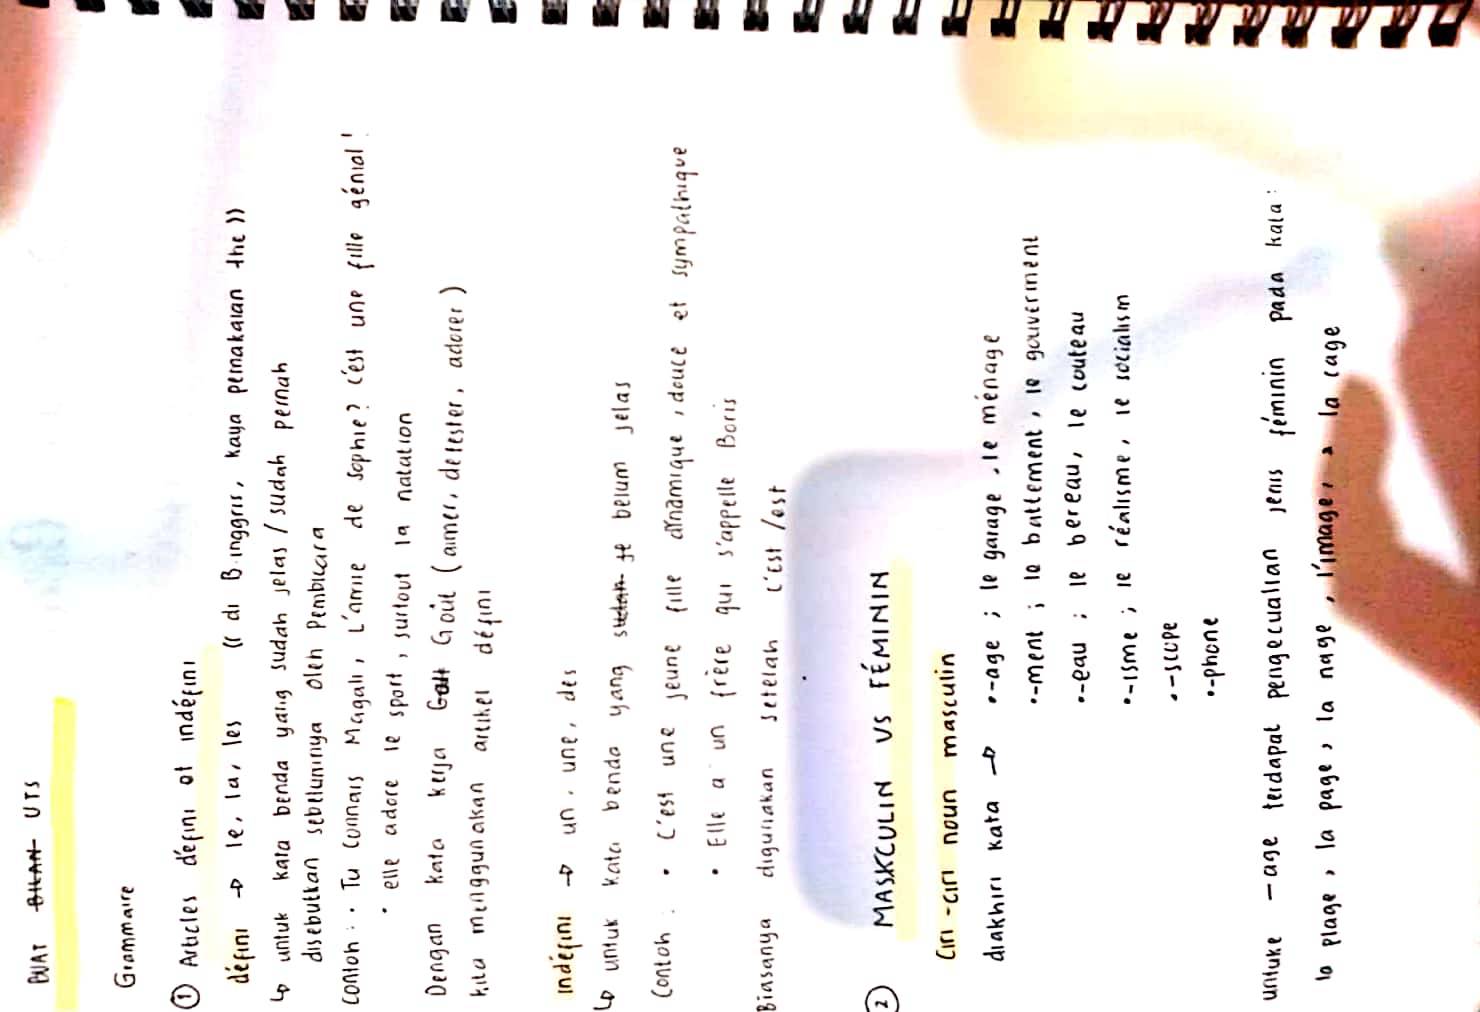 BUAT BILAN UTS
Grammaire
① Articles défini et indéfini
défini → le, la, les (( di B.inggris, kaya pemakaian the ))
↳ untuk kata benda yang sudah jelas / sudah pernah
disebutkan sebelumnya oleh Pembicara
Contoh : • Tu connais Magali, L'amie de Sophie? C'est une fille génial!
• elle adore le sport, surtout la natation
Dengan kata kerja Goût (aimer, detester, adorer)
kita menggunakan artikel défini
Indéfini → un, une, des
↳ untuk kata benda yang belum jelas
Contoh : • C'est une jeune fille dinamique, douce et sympathique
• Elle a un frère qui s'appelle Boris
Biasanya digunakan setelah C'est /est
② MASKCULIN VS FÉMININ
Ciri-ciri noun masculin
diakhiri kata → •-age ; le garage, le ménage
•-ment ; le battement, le gouverment
•-eau ; le bereau, le couteau
•-isme ; le réalisme, le socialism
•-scope
•-phone
untuke -age terdapat pengecualian jenis féminin pada kata :
la plage, la page, la nage, l'image, la cage